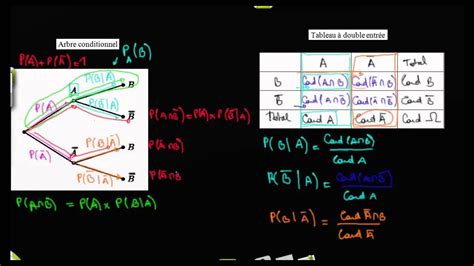 Arbre conditionnel
P(A)+P(Ā)=1
P_A(B)
P(B|A)
A
B
P(A)
P(B̄|A)
B̄
P(A∩B̄) = P(A) × P(B̄|A)
P(B|Ā)
B
P(Ā∩B)
P(Ā)
Ā
P(B̄|Ā)
B̄
P(Ā∩B̄)
P(A∩B) = P(A) × P(B|A)
Tableau à double entrée
A Ā Total
B Card(A∩B) Card(Ā∩B) Card B
B̄ Card(A∩B̄) Card(Ā∩B̄) Card B̄
Total Card A Card Ā Card Ω
P(B|A) = Card(A∩B) / Card A
P(B̄|A) = Card(A∩B̄) / Card A
P(B|Ā) = Card Ā∩B / Card Ā